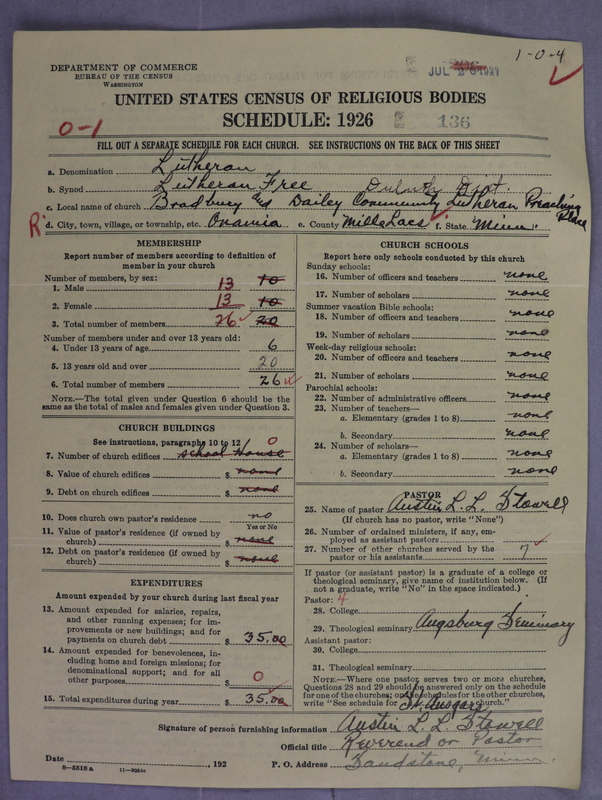 1-0-4
DEPARTMENT OF COMMERCE
BUREAU OF THE CENSUS
WASHINGTON
JUL 26 1927
UNITED STATES CENSUS OF RELIGIOUS BODIES
SCHEDULE: 1926
136
0-1
FILL OUT A SEPARATE SCHEDULE FOR EACH CHURCH. SEE INSTRUCTIONS ON THE BACK OF THIS SHEET
a. Denomination Lutheran
b. Synod Lutheran Free Duluth Dist.
c. Local name of church Bradbury and Dailey Community Lutheran Preaching Place
R. d. City, town, village, or township, etc. Onamia e. County Mille Lacs f. State Minn.
MEMBERSHIP
Report number of members according to definition of
member in your church
Number of members, by sex:
1. Male 13 10
2. Female 13 10
3. Total number of members 26 20
Number of members under and over 13 years old:
4. Under 13 years of age 6
5. 13 years old and over 20
6. Total number of members 26
NOTE.—The total given under Question 6 should be the
same as the total of males and females given under Question 3.
CHURCH BUILDINGS
See instructions, paragraphs 10 to 12
7. Number of church edifices school House 0
8. Value of church edifices $ none
9. Debt on church edifices $ none
10. Does church own pastor's residence no
Yes or No
11. Value of pastor's residence (if owned by
church) $ none
12. Debt on pastor's residence (if owned by
church) $ none
EXPENDITURES
Amount expended by your church during last fiscal year
13. Amount expended for salaries, repairs,
and other running expenses; for im-
provements or new buildings; and for
payments on church debt $ 35.00
14. Amount expended for benevolences, in-
cluding home and foreign missions; for
denominational support; and for all
other purposes $ 0
15. Total expenditures during year $ 35.00
CHURCH SCHOOLS
Report here only schools conducted by this church
Sunday schools:
16. Number of officers and teachers none
17. Number of scholars none
Summer vacation Bible schools:
18. Number of officers and teachers none
19. Number of scholars none
Week-day religious schools:
20. Number of officers and teachers none
21. Number of scholars none
Parochial schools:
22. Number of administrative officers none
23. Number of teachers—
a. Elementary (grades 1 to 8) none
b. Secondary none
24. Number of scholars—
a. Elementary (grades 1 to 8) none
b. Secondary none
PASTOR
25. Name of pastor Austin L. L. Stowell
(If church has no pastor, write "None")
26. Number of ordained ministers, if any, em-
ployed as assistant pastors
27. Number of other churches served by the
pastor or his assistants 7
If pastor (or assistant pastor) is a graduate of a college or
theological seminary, give name of institution below. (If
not a graduate, write "No" in the space indicated.)
Pastor: 4
28. College
29. Theological seminary Augsburg Seminary
Assistant pastor:
30. College
31. Theological seminary
NOTE.—Where one pastor serves two or more churches,
Questions 28 and 29 should be answered only on the schedule
for one of the churches; on the schedules for the other churches,
write "See schedule for St. Ansgars church."
Signature of person furnishing information Austin L. L. Stowell
Official title Reverend or Pastor
Date , 192 P. O. Address Sandstone, Minn.
8-5518 a 11-9051